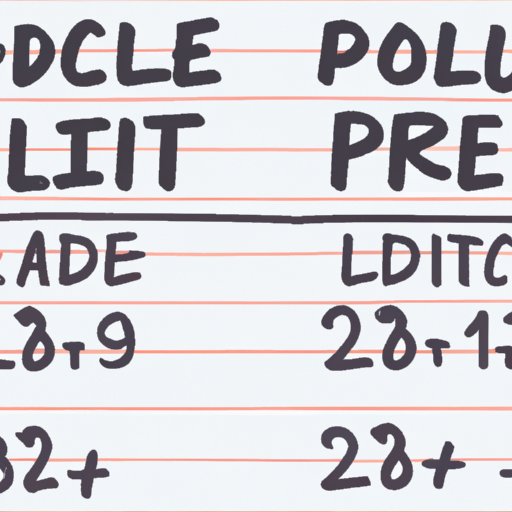 PDCLE POLU
LIIT PRE
ADE LDITC
28T9 28T17
32+ 28+